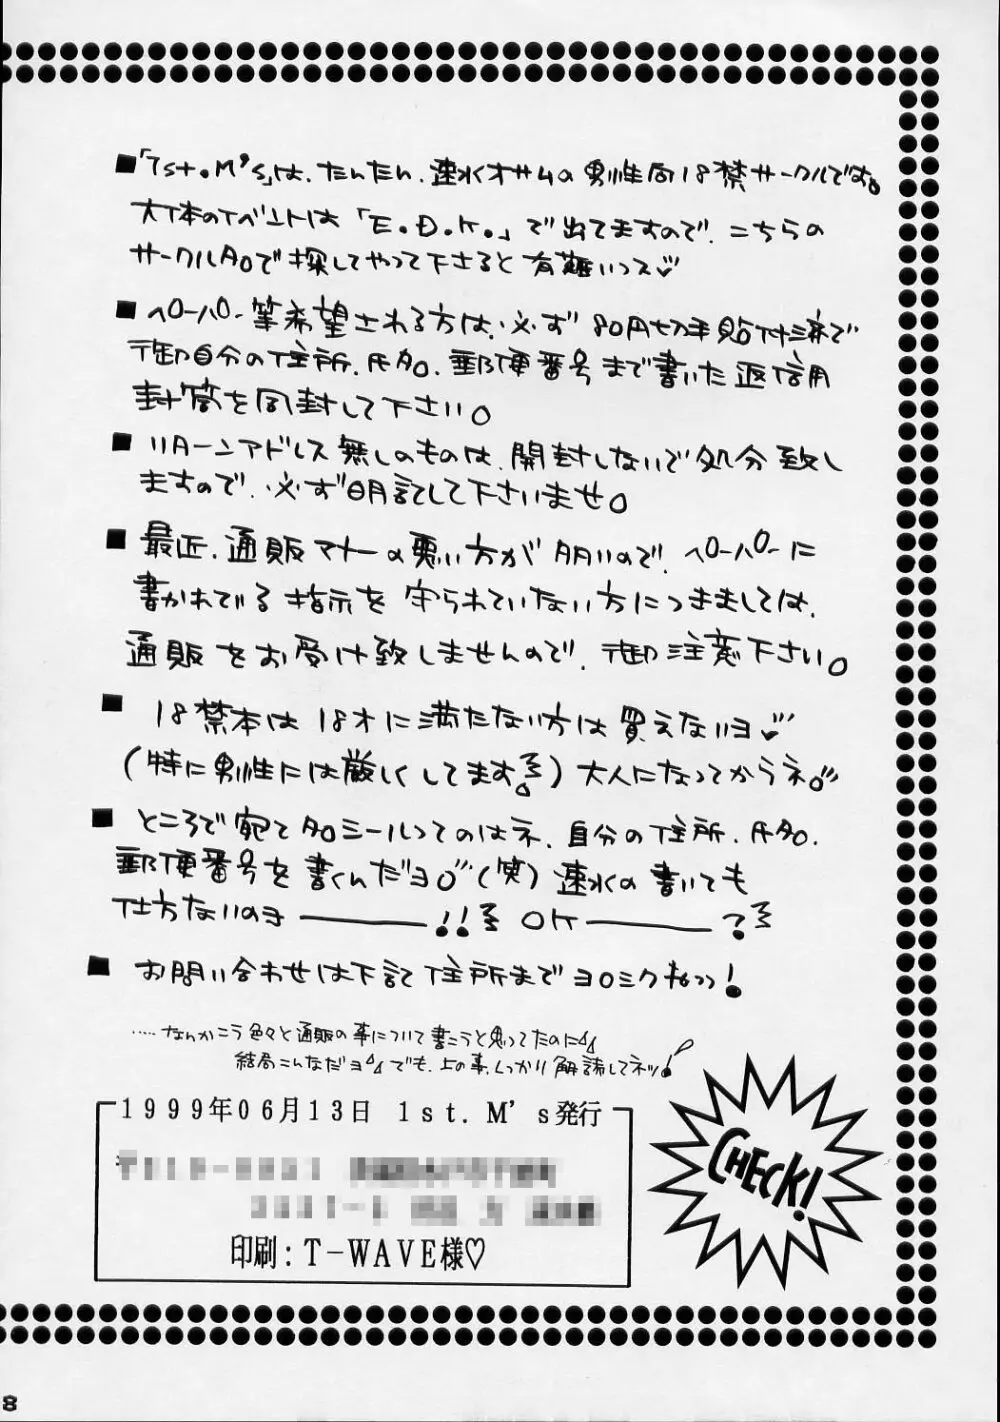 ■「1st.M's」は、たんたん、速水オサムの男性向18禁サークルです。
大体のイベントは「E.D.K.」で出てますので、こちらの
サークル名で探してやって下さると有難いっス♡
■ペーパー等希望される方は、必ず80円切手貼付済で
御自分の住所、氏名、郵便番号まで書いた返信用
封筒を同封して下さい。
■リターンアドレス無しのものは、開封しないで処分致し
ますので、必ず明記して下さいませ。
■最近、通販マナーの悪い方が多いので、ペーパーに
書かれてる指示を守られていない方につきましては、
通販をお受け致しませんので、御注意下さい。
■18禁本は18才に満たない方は買えないヨ♡
(特に男性には厳しくしてます!)大人になってからネ。
■ところで宛て名シールってのはネ、自分の住所、氏名、
郵便番号を書くんだヨ。(笑)速水の書いても
仕方ないのヨ――!! OK――?
■お問い合わせは下記住所までヨロシクねっっ!
……なんかこう色々と通販の事について書こうと思ってたのに
結局こんなだヨ でも、上の事、しっかり解読してネッ!
1999年06月13日 1st. M's発行
印刷：T-WAVE様♡
CHECK!
8